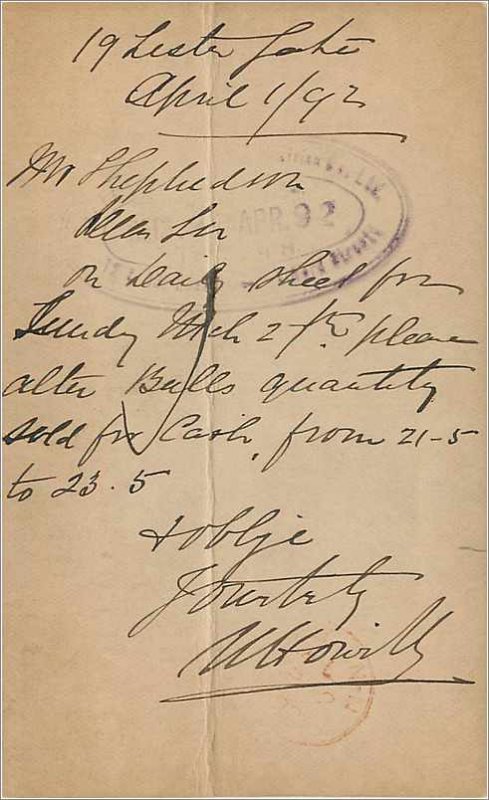 19 Lister Gate
April 1/92
Mr Shepherdson
Dear Sir
on Daily sheet for
Sunday Mch 27th please
alter Bulls quantity
sold for Cash, from 21-5
to 23.5
& oblige
Yours truly
APR. 92